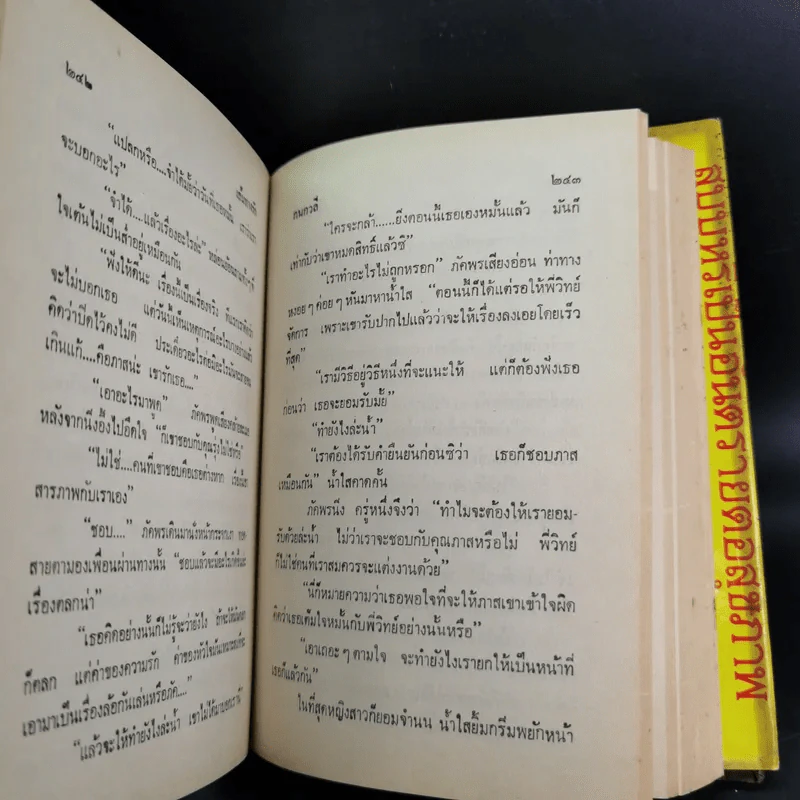 ๒๔๒
"แปลกหรือ....จำได้มั้ยว่าวันที่เธอหมั้น
จะบอกอะไร"
"จำได้....แล้วเรื่องอะไรล่ะ"
ใจเต้นไม่เป็นส่ำอยู่เหมือนกัน
"ฟังให้ดีนะ เรื่องนี้เป็นเรื่องจริง
จะไม่บอกเธอ แต่วันนี้เห็นเหตุการณ์อะไรบางอย่างแล้ว
คิดว่าปิดไว้คงไม่ดี ประเดี๋ยวอะไรต่อมิอะไรมันจะสาย
เกินแก้....คือภาสน่ะ เขารักเธอ...."
"เอาอะไรมาพูด" ภัคพรพูด
หลังจากนิ่งอึ้งไปอึดใจ "ก็เขาชอบกับคุณรุ้งไม่ใช่หรือ"
"ไม่ใช่....คนที่เขาชอบคือเธอต่างหาก
สารภาพกับเราเอง"
"ชอบ...." ภัคพรเดินมานั่งหน้ากระจกเงา
สายตามองเพื่อนผ่านทางนั้น "ชอบแล้วจะมีอะไร
เรื่องตลกน่า"
"เธอคิดอย่างนั้นก็ไม่รู้จะว่ายังไง
ก็ตลก แต่ค่าของความรัก ค่าของหัวใจมัน
เอามาเป็นเรื่องล้อกันเล่นหรือภัค...."
"แล้วจะให้ทำยังไงล่ะน้ำ เขาไม่ได้มาบอกเรานี่
กนกวลี
๒๔๓
"ใครจะกล้า......ยิ่งตอนนี้เธอเองหมั้นแล้ว มันก็
เท่ากับว่าเขาหมดสิทธิ์แล้วซิ"
"เราทำอะไรไม่ถูกหรอก" ภัคพรเสียงอ่อน ท่าทาง
หงอยๆ ค่อยๆ หันมาหาน้ำใส "ตอนนี้ก็ได้แต่รอให้พี่วิทย์
จัดการ เพราะเขารับปากไปแล้วว่าจะให้เรื่องลงเอยโดยเร็ว
ที่สุด"
"เรามีวิธีอยู่วิธีหนึ่งที่จะแนะให้ แต่ก็ต้องฟังเธอ
ก่อนว่า เธอจะยอมรับมั้ย"
"ทำยังไงล่ะน้ำ"
"เราต้องได้รับคำยืนยันก่อนซิว่า เธอก็ชอบภาส
เหมือนกัน" น้ำใสคาดคั้น
ภัคพรนิ่ง ครู่หนึ่งจึงว่า "ทำไมจะต้องให้เรายอม-
รับด้วยล่ะน้ำ ไม่ว่าเราจะชอบกับคุณภาสหรือไม่ พี่วิทย์
ก็ไม่ใช่คนที่เราสมควรจะแต่งงานด้วย"
"นี่ก็หมายความว่าเธอพอใจที่จะให้ภาสเขาเข้าใจผิด
คิดว่าเธอเต็มใจหมั้นกับพี่วิทย์อย่างนั้นหรือ"
"เอาเถอะๆ ตามใจ จะทำยังไงเรายกให้เป็นหน้าที่
เธอก็แล้วกัน"
ในที่สุดหญิงสาวก็ยอมจำนน น้ำใสยิ้มกริ่มพยักหน้า
สูบบุหรี่เป็นอันตรายต่อสุขภาพ